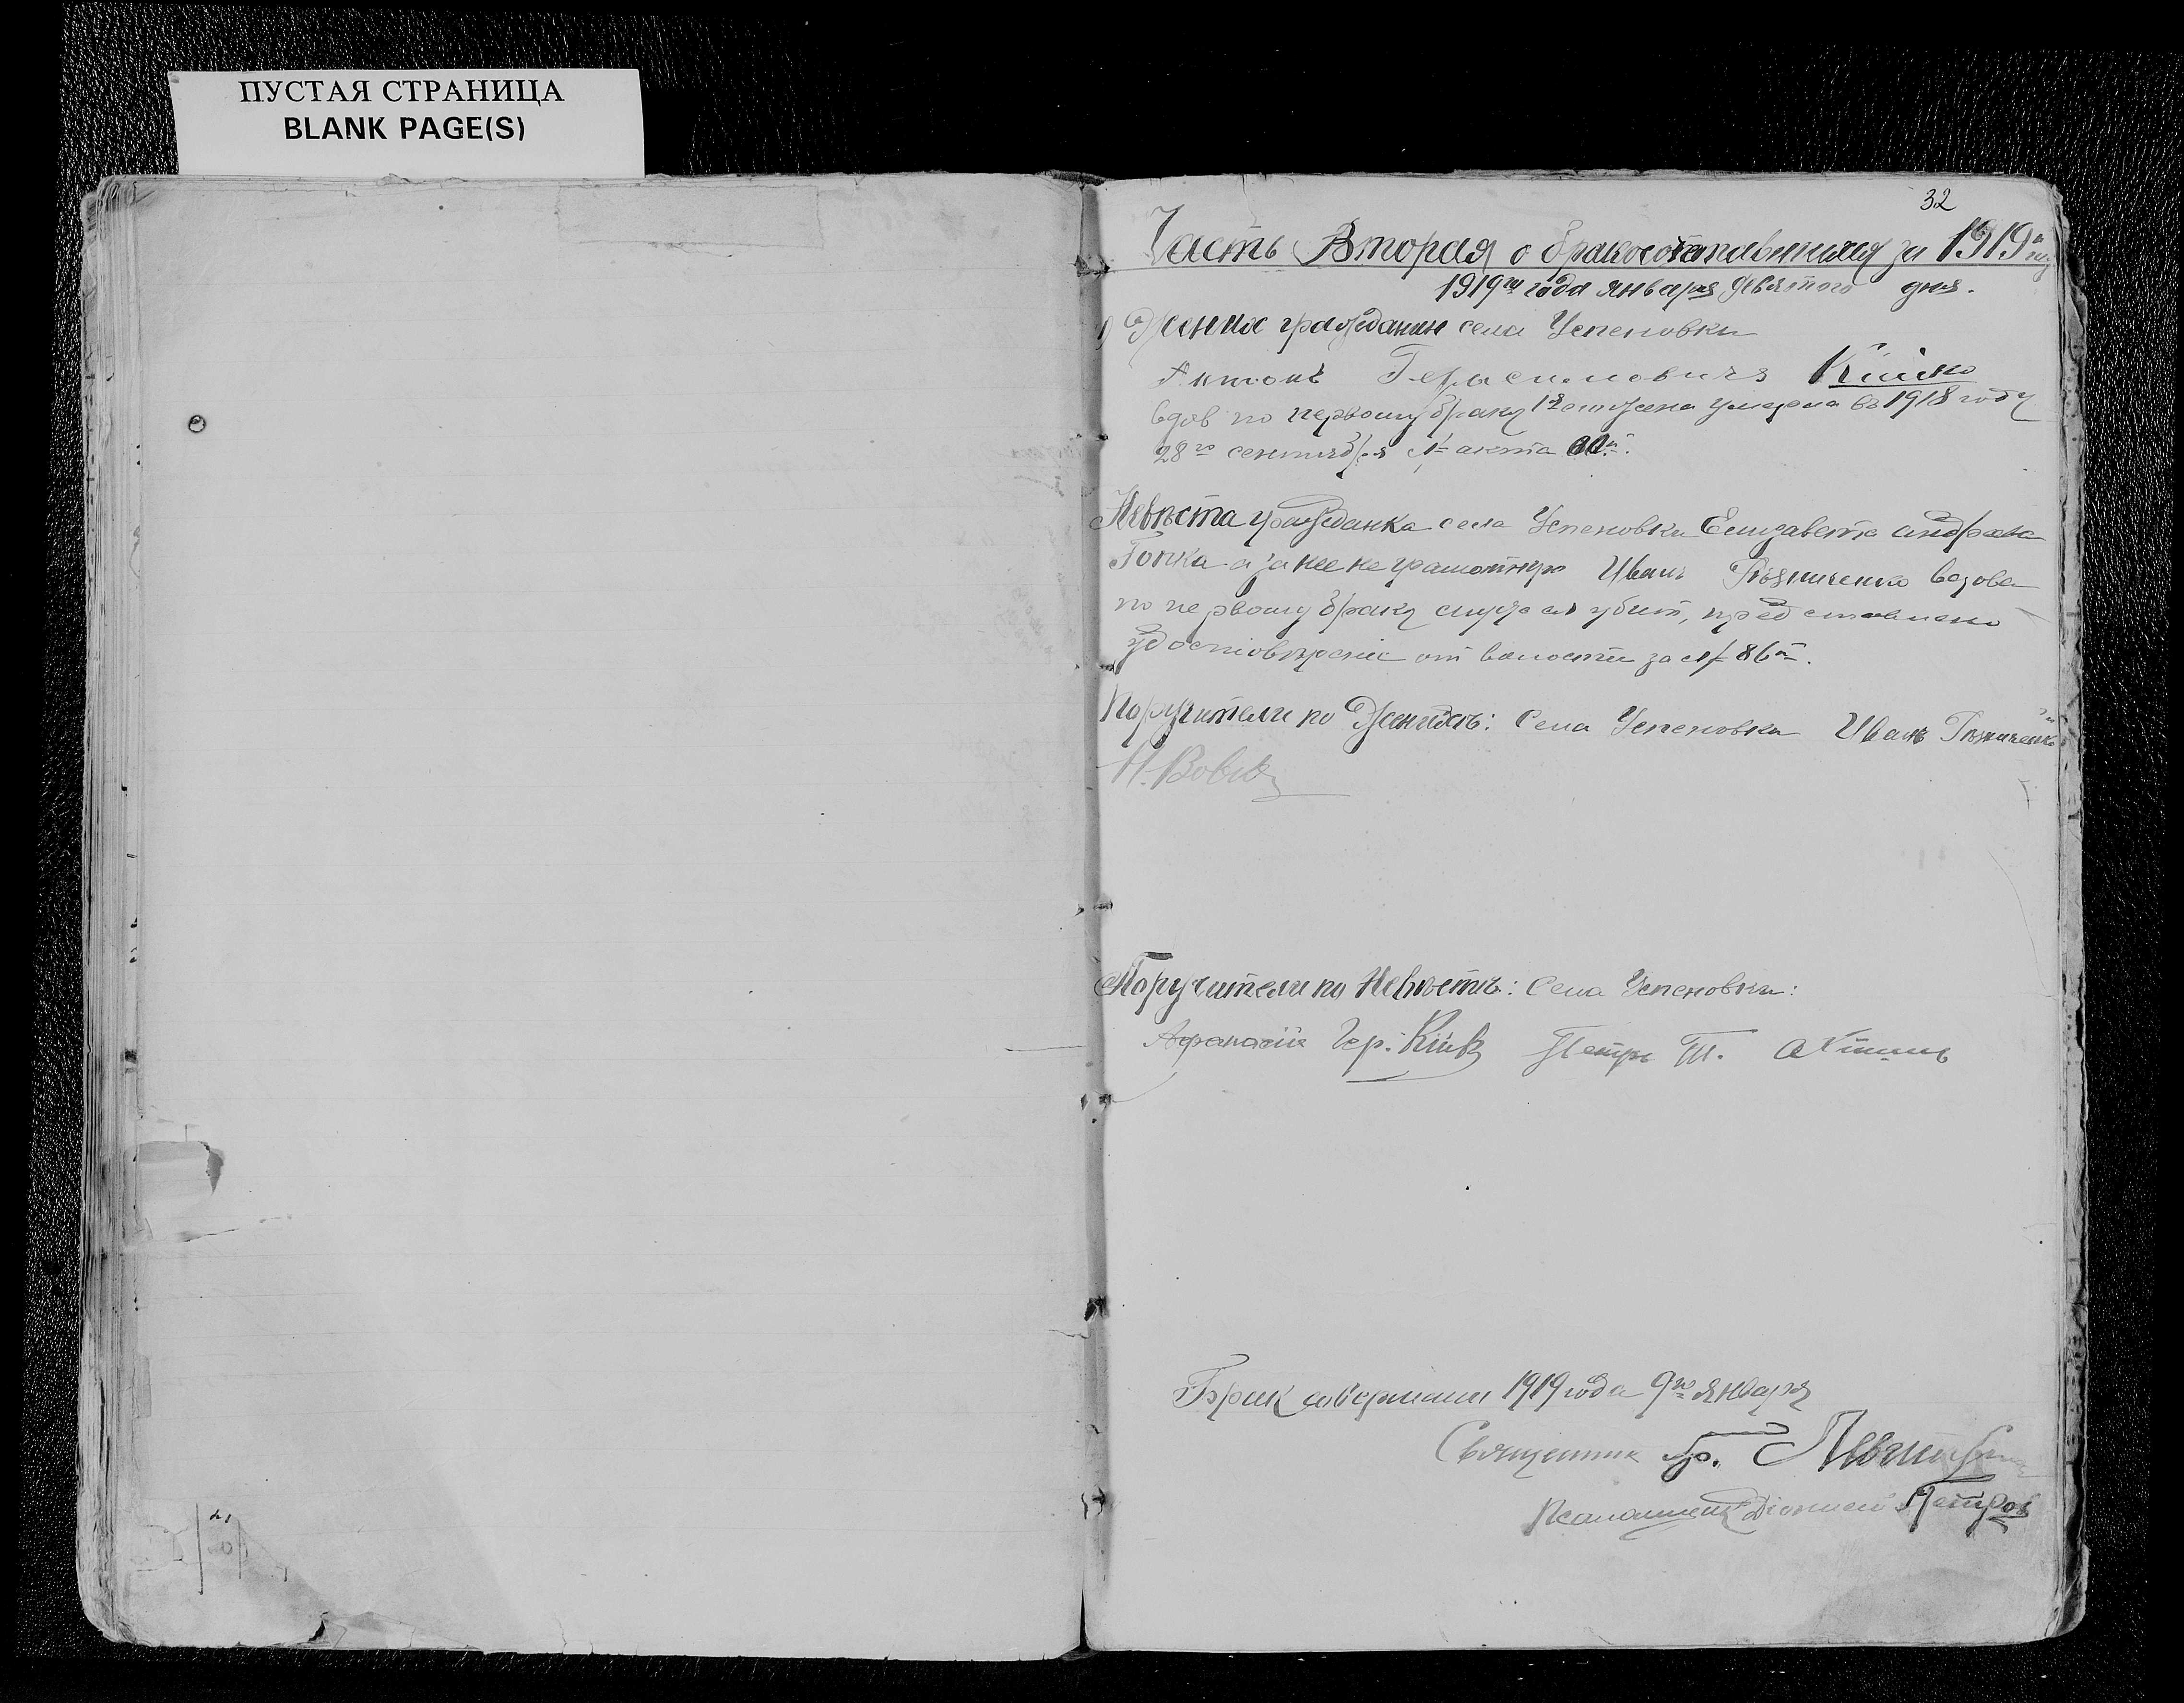 ПУСТАЯ СТРАНИЦА
BLANK PAGE(S)
32
Часть Вторая о бракосочетавшихся за 1919
1919го года января девятого дня.
1) Жених гражданин села Успеновки
Антонъ Герасимовичъ Кiйко
вдов по первому браку жена умерла въ 1918 году
28го сентября № акта
Невѣста гражданка села Успеновки Елизавета
а за нее неграмотную Иванъ Рѣзниченко вдова
по первому браку муж ея убит, представлено
удостовѣрение от волости за № 86й.
Поручители по Женихѣ: Села Успеновки Иванъ Рѣзниченко
Н. Вовкъ
Поручители по Невѣстѣ: Села Успеновки:
Афанасiй Гер. Кiйкъ Петръ Т.
Брак совершили 1919 года 9го января
Священник Гр.
Псаломщик Дiонисий Петров